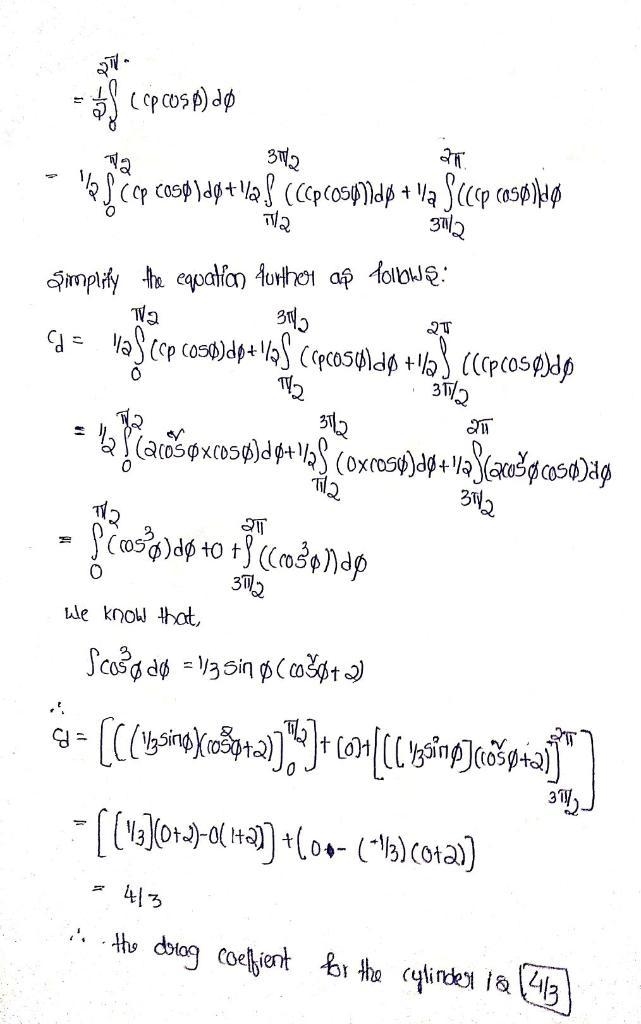 = 1/2 ∫₀^2π (cp cosø) dø
= 1/2 ∫₀^π/2 (cp cosø) dø + 1/2 ∫π/2^3π/2 (((cp cosø))dø + 1/2 ∫3π/2^2π (((cp cosø))dø
Simplify the equation further as follows:
Cd = 1/2 ∫₀^π/2 (cp cosø)dø + 1/2 ∫π/2^3π/2 (cp cosø)dø + 1/2 ∫3π/2^2π (((cp cosø)dø
= 1/2 ∫₀^π/2 (2cos²ø x cosø)dø + 1/2 ∫π/2^3π/2 (0xcosø)dø + 1/2 ∫3π/2^2π (2cos²ø cosø)dø
= ∫₀^π/2 (cos³ø)dø + 0 + ∫3π/2^2π ((cos³ø))dø
We know that,
∫cos³ø dø = 1/3 sin ø (cos²ø + 2)
∴ Cd = [((1/3 sinø)(cos²ø+2)]₀^π/2] + [0] + [((1/3 sinø](cos²ø+2)]3π/2^2π]
= [(1/3](0+2)-0(1+2)] + (0 - (-1/3)(0+2)]
= 4/3
∴ the drag coeffient for the cylinder is 4/3